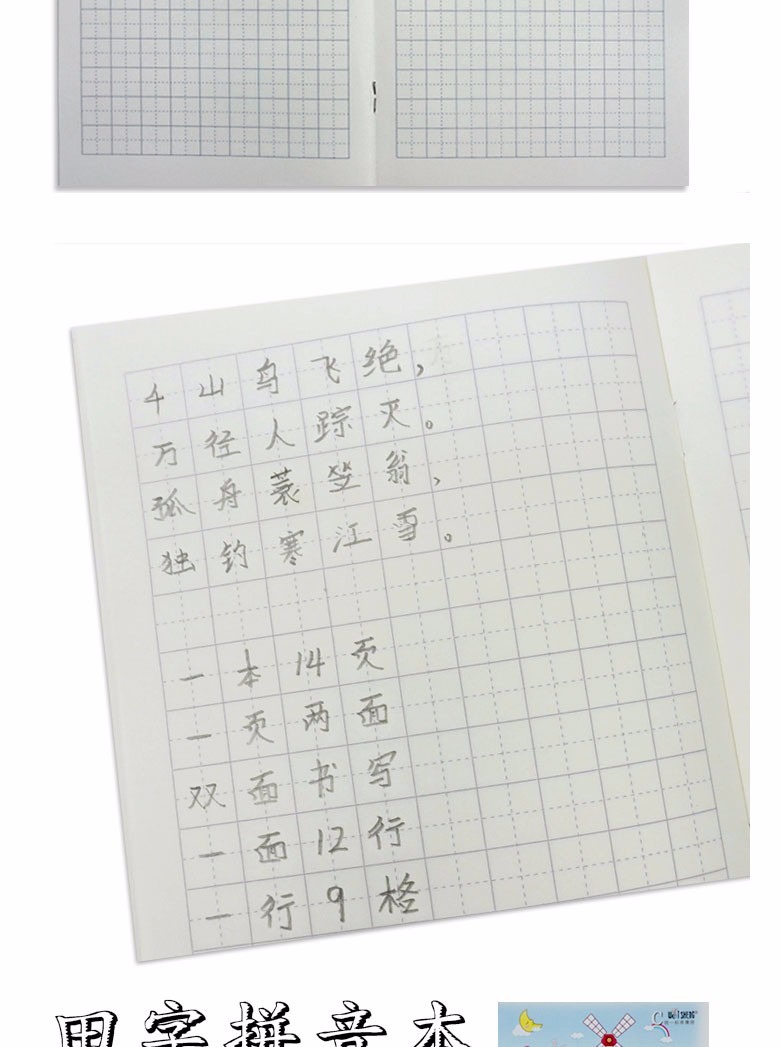 千山鸟飞绝，
万径人踪灭。
孤舟蓑笠翁，
独钓寒江雪。
一本14页
一页两面
双面书写
一面12行
一行9格
田字拼音本